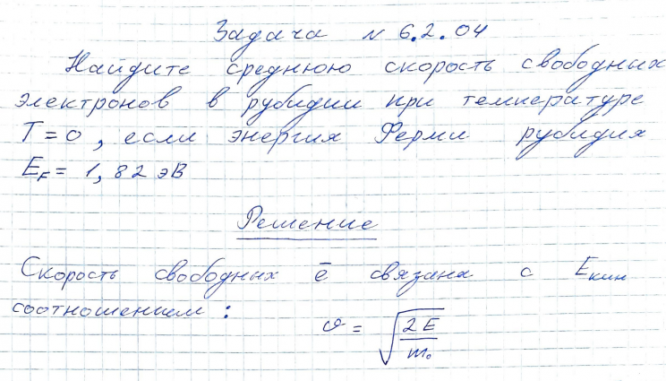 Задача № 6.2.04
Найдите среднюю скорость свободных
электронов в рубидии при температуре
T=0, если энергия Ферми рубидия
E_F = 1,82 эВ
Решение
Скорость свободных ē связана с E_кин
соотношением:
υ = √(2E/m₀)